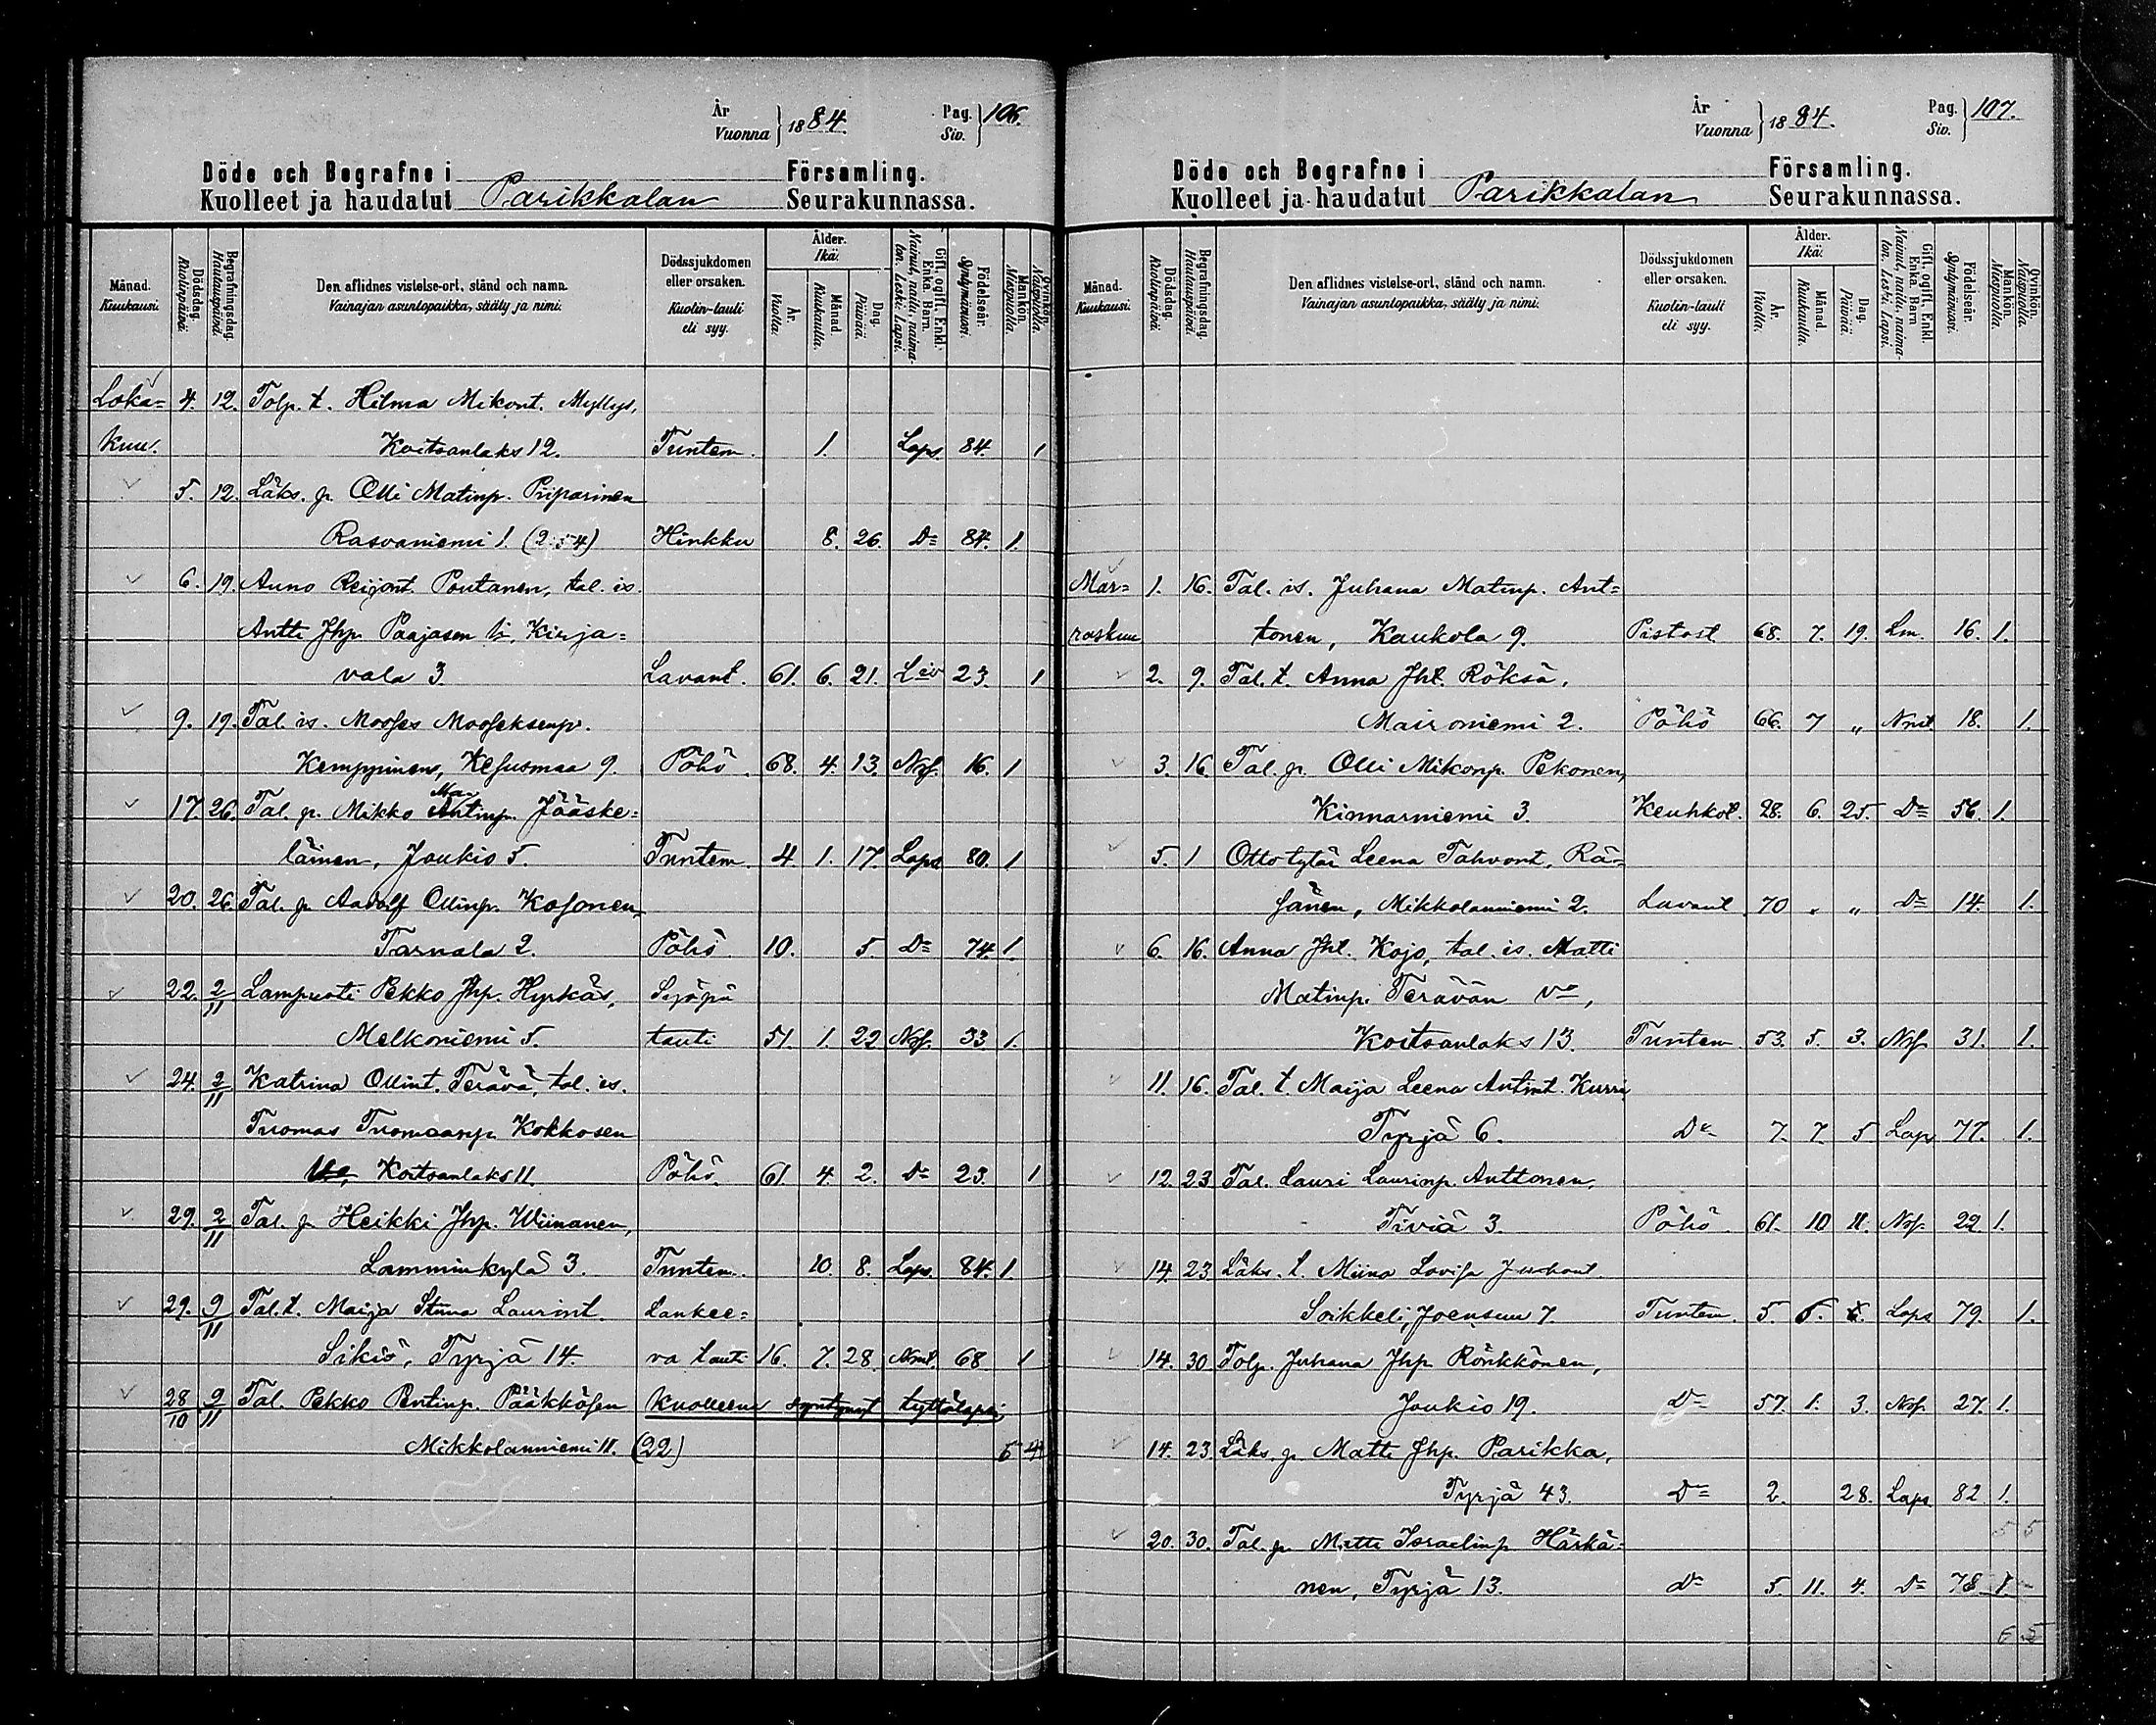 År
Vuonna } 1884.
Pag.
Siv. } 106.
Döde och Begrafne i Församling.
Kuolleet ja haudatut Parikkalan Seurakunnassa.
Månad. Kuukausi.
Dödsdag. Kuolinpäivä.
Begrafningsdag. Hautauspäivä.
Den aflidnes vistelse-ort, stånd och namn.
Vainajan asuntopaikka, sääty ja nimi.
Dödssjukdomen eller orsaken.
Kuolin-tauti eli syy.
Ålder. Ikä.
År. Vuotta.
Månad. Kuukautta.
Dag. Päivää.
Gift, ogift, Enkl. Enka. Barn.
Nainut, naitu, naimaton. Leski. Lapsi.
Födelseår. Syntymävuosi.
Mankön. Miespuolia.
Qvinkön. Naispuolia.
Loka= 4. 12. Tolp. t. Hilma Mikont. Myllys,
kuu. Koitsanlaks 12. Tuntem. 1. Laps. 84. 1
5. 12. Läks. p. Olli Matinp. Piiparinen
Rasvaniemi 1. (254) Hinkku 8. 26. D= 84. 1.
6. 19. Anno Reijont. Poutanen, tal. is.
Antti Jhp. Paajasen , Kirja=
vala 3. Lavant. 61. 6. 21. 23. 1
9. 19. Tal. is. Mooses Mooseksenp.
Kemppinen, Kesusmaa 9. Pöhö. 68. 4. 13. Nsf. 16. 1
17. 26. Tal. p. Mikko Antinp. Jääske=
läinen, Joukio 5. Tuntem. 4 1. 17. Laps 80. 1
20. 26. Tal. p. Aadolf Ollinp. Kosonen,
Tarnala 2. Pöhö. 10. 5. D= 74. 1.
22. 2/11 Lampuoti Pekko Jhp. Hyrkäs, Syöpä
Melkoniemi 5. tauti 51. 1. 22 Nsf. 33 1.
24. 2/11 Katrina Ollint. Terävä, tal. is.
Tuomas Tuomaanp. Kokkosen
Koitsanlaks 11. Pöhö. 61. 4. 2. D= 23. 1
29. 2/11 Tal. p. Heikki Jhp. Wiinanen,
Lamminkylä 3. Tuntem. 10. 8. Laps. 84. 1.
29. 9/11 Tal. t. Maija Stiina Laurint. Lankee=
Sikiö, Tyrjä 14. va tauti 16. 7. 28. Nmt. 68 1
28/10 9/11 Tal. Pekko Pentinp. Pääkkösen kuolleena syntynyt tyttölapsi,
Mikkolanniemi 11. (22) 6 4
År
Vuonna } 1884.
Pag.
Siv. } 107.
Döde och Begrafne i Församling.
Kuolleet ja haudatut Parikkalan Seurakunnassa.
Månad. Kuukausi.
Dödsdag. Kuolinpäivä.
Begrafningsdag. Hautauspäivä.
Den aflidnes vistelse-ort, stånd och namn.
Vainajan asuntopaikka, sääty ja nimi.
Dödssjukdomen eller orsaken.
Kuolin-tauti eli syy.
Ålder. Ikä.
År. Vuotta.
Månad. Kuukautta.
Dag. Päivää.
Gift, ogift, Enkl. Enka. Barn
Nainut, naitu, naimaton. Leski. Lapsi.
Födelseår. Syntymävuosi.
Mankön. Miespuolia.
Qvinkön. Naispuolia.
Mar= 1. 16. Tal. is. Juhana Matinp. Ant=
raskuu tonen, Kaukola 9. Pistost 68. 7. 19. Lm. 16. 1.
2. 9. Tal. t. Anna Jht. Röksä,
Maironiemi 2. Pöhö 66. 7 „ Nmt. 18. 1.
3. 16. Tal. p. Olli Mikonp. Pekonen,
Kinnarniemi 3. Keuhkot. 28. 6. 25. D= 56. 1.
5. 1 Ottotytär Leena Tahvont. Rä=
sänen, Mikkolanniemi 2. Lavant 70 „ „ D= 14. 1.
6. 16. Anna Jht. Kojo, tal. is. Matti
Matinp. Terävän v=,
Koitsanlaks 13. Tuntem 53. 5. 3. Nsf 31. 1.
11. 16. Tal. t. Maija Leena Antint. Kurri,
Tyrjä 6. D= 7. 7. 5 Laps 77. 1.
12. 23 Tal. Lauri Laurinp. Anttonen,
Tiviä 3. Pöhö 61. 10 11. Nsf. 22 1.
14. 23 Läks. t. Miina Lovisa Juhont.
Soikkeli, Joensuu 7. Tuntem. 5. 5. Laps 79. 1.
14. 30 Tolp. Juhana Jhp. Rönkkönen,
Joukio 19. D= 57. 1. 3. Nsf. 27. 1.
14. 23. Läks. p. Matti Jhp. Parikka,
Tyrjä 43. D= 2. 28. Laps 82 1.
5 5
20. 30. Tal. p. Matti Israelinp. Härkä=
nen, Tyrjä 13. D= 5. 11. 4. D= 78 1.
6 5